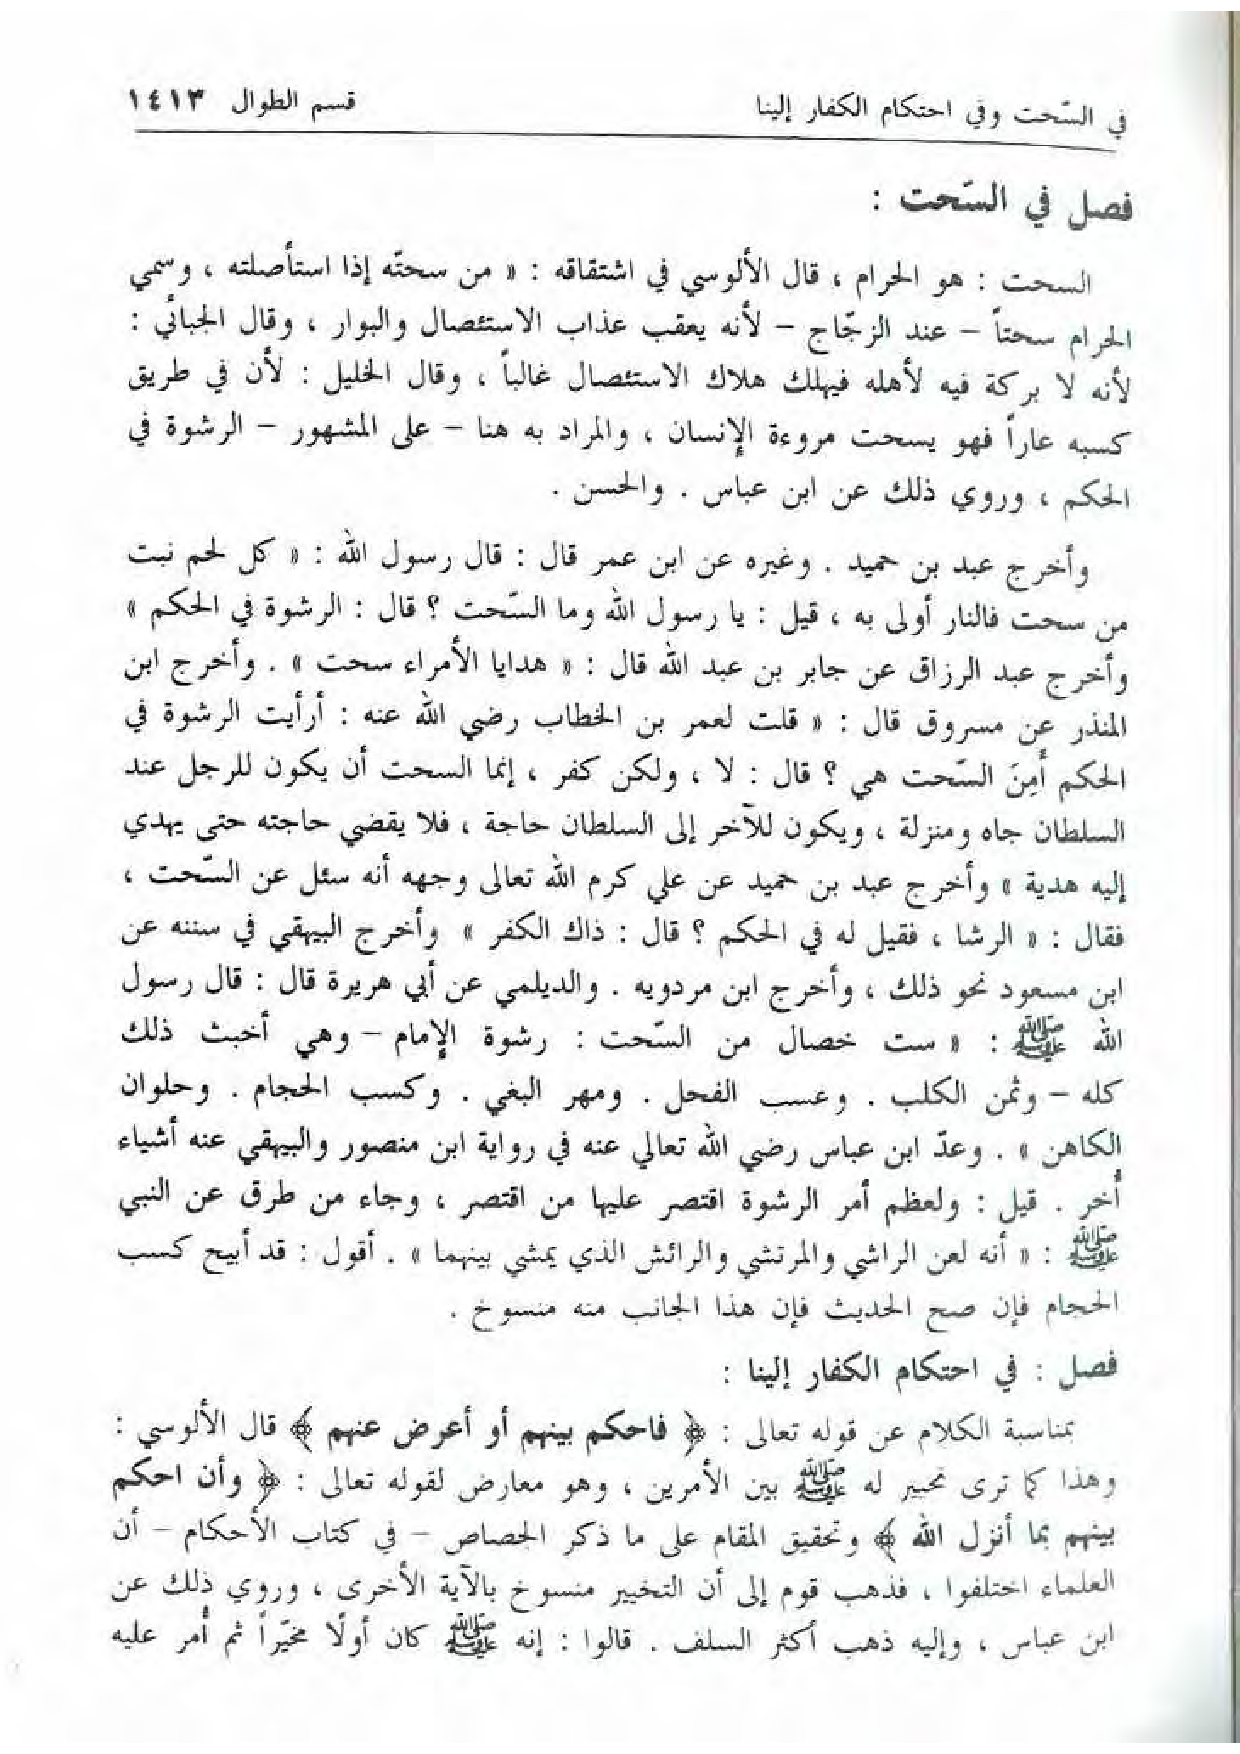 في السّحت وفي احتكام الكفار إلينا
قسم الطوال ١٤١٣
فصل في السّحت :
السحت : هو الحرام ، قال الألوسي في اشتقاقه : « من سحتّه إذا استأصلته ، وسمي
الحرام سحتاً – عند الزجّاج – لأنه يعقب عذاب الاستئصال والبوار ، وقال الجبائي :
لأنه لا بركة فيه لأهله فيهلك هلاك الاستئصال غالباً ، وقال الخليل : لأن في طريق
كسبه عاراً فهو يسحت مروءة الإنسان ، والمراد به هنا – على المشهور – الرشوة في
الحكم ، وروي ذلك عن ابن عباس . والحسن .
وأخرج عبد بن حميد . وغيره عن ابن عمر قال : قال رسول الله : « كل لحم نبت
من سحت فالنار أولى به ، قيل : يا رسول الله وما السّحت ؟ قال : الرشوة في الحكم »
وأخرج عبد الرزاق عن جابر بن عبد الله قال : « هدايا الأمراء سحت » . وأخرج ابن
المنذر عن مسروق قال : « قلت لعمر بن الخطاب رضي الله عنه : أرأيت الرشوة في
الحكم أَمِنَ السّحت هي ؟ قال : لا ، ولكن كفر ، إنما السحت أن يكون للرجل عند
السلطان جاه ومنزلة ، ويكون للآخر إلى السلطان حاجة ، فلا يقضي حاجته حتى يهدي
إليه هدية » وأخرج عبد بن حميد عن علي كرم الله تعالى وجهه أنه سئل عن السّحت ،
فقال : « الرشا ، فقيل له في الحكم ؟ قال : ذاك الكفر » وأخرج البيهقي في سننه عن
ابن مسعود نحو ذلك ، وأخرج ابن مردويه . والديلمي عن أبي هريرة قال : قال رسول
الله ﷺ : « ست خصال من السّحت : رشوة الإمام – وهي أخبث ذلك
كله – وثمن الكلب . وعسب الفحل . ومهر البغي . وكسب الحجام . وحلوان
الكاهن » . وعدّ ابن عباس رضي الله تعالي عنه في رواية ابن منصور والبيهقي عنه أشياء
أُخر . قيل : ولعظم أمر الرشوة اقتصر عليها من اقتصر ، وجاء من طرق عن النبي
ﷺ : « أنه لعن الراشي والمرتشي والرائش الذي يمشي بينهما » . أقول : قد أبيح كسب
الحجام فإن صح الحديث فإن هذا الجانب منه منسوخ .
فصل : في احتكام الكفار إلينا :
بمناسبة الكلام عن قوله تعالى : ﴿ فاحكم بينهم أو أعرض عنهم ﴾ قال الألوسي :
وهذا كما ترى تخيير له ﷺ بين الأمرين ، وهو معارض لقوله تعالى : ﴿ وأن احكم
بينهم بما أنزل الله ﴾ وتحقيق المقام على ما ذكر الجصاص – في كتاب الأحكام – أن
العلماء اختلفوا ، فذهب قوم إلى أن التخيير منسوخ بالآية الأخرى ، وروي ذلك عن
ابن عباس ، وإليه ذهب أكثر السلف . قالوا : إنه ﷺ كان أولًا مخيّراً ثم أمر عليه